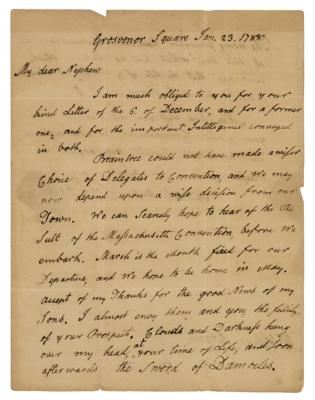 Grosvenor Square Jan. 23. 1788
My dear Nephew
I am much obliged to you for your
kind Letter of the 5. of December, and for a former
one, and for the important Intelligence conveyed
in both.
Braintree could not have made a wiser
Choice of Delegates to Convention and We may
now depend upon a wise decision from our
Town. We can Scarcely hope to hear of the Re
Sult of the Massachusetts Convention, before We
embark. March is the Month fixed for our
Departure, and We hope to be home in May.
accept of my Thanks for the good News of my
Sons. I almost envy them and you, the felicity
of your Prospects. Clouds and Darkness hung
over my head, at your time of Life, and soon
afterwards the Sword of Damocles.